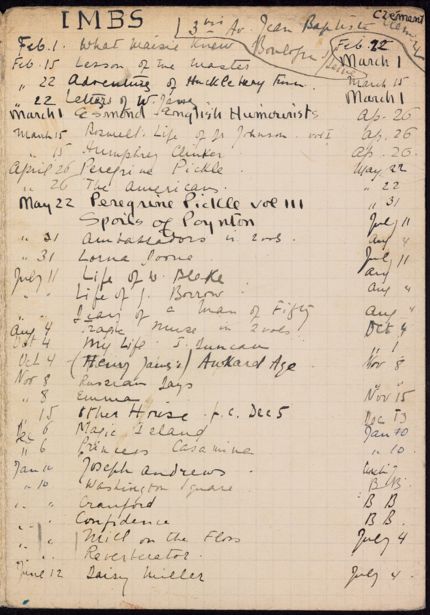 IMBS
3 bis Av. Jean Baptiste Clément
Boulogne
Feb. 1. What Maisie Knew Feb. 22
Feb. 15 Lesson of the Master March 1
" 22 Adventures of Huckleberry Finn. March 15
" 22 Letters of W. James March 1
March 1 Esmond - English Humourists Ap. 26
March 15 Boswell. Life of Dr Johnson. vol I Ap. 26
" 15 Humphrey Clinker Ap. 26.
April 26 Peregrine Pickle. May 22
" 26 The Americans. " 22
May 22 Peregrine Pickle vol III " 31
Spoils of Poynton July 11
" 31 Ambassadors in 2 vols. Aug 4
" 31 Lorna Doone July 11
July 11 Life of W. Blake. Aug
" Life of G. Borrow. Aug 4
" Diary of a Man of Fifty Aug 4
Aug 4 Tragic Muse in 2 vols. Oct 4
Oct 4 My Life I. Duncan " 1
Oct 4 (Henry James) Awkard Age. Nov 8
Nov 8 Russian Days
" 8 Emma Nov 15
" 15 Other House. p.c. Dec 5 Dec 13
Dec 6 Magic Island Jan 10
" 6 Princess Casamina " 10.
Jan 10 Joseph Andrews.
" 10 Washington Square. B B.
" " Cranford B B
" " Confidence B B.
" " Mill on the Floss July 4
" " Reverberator.
June 12 Daisy Miller July 4.